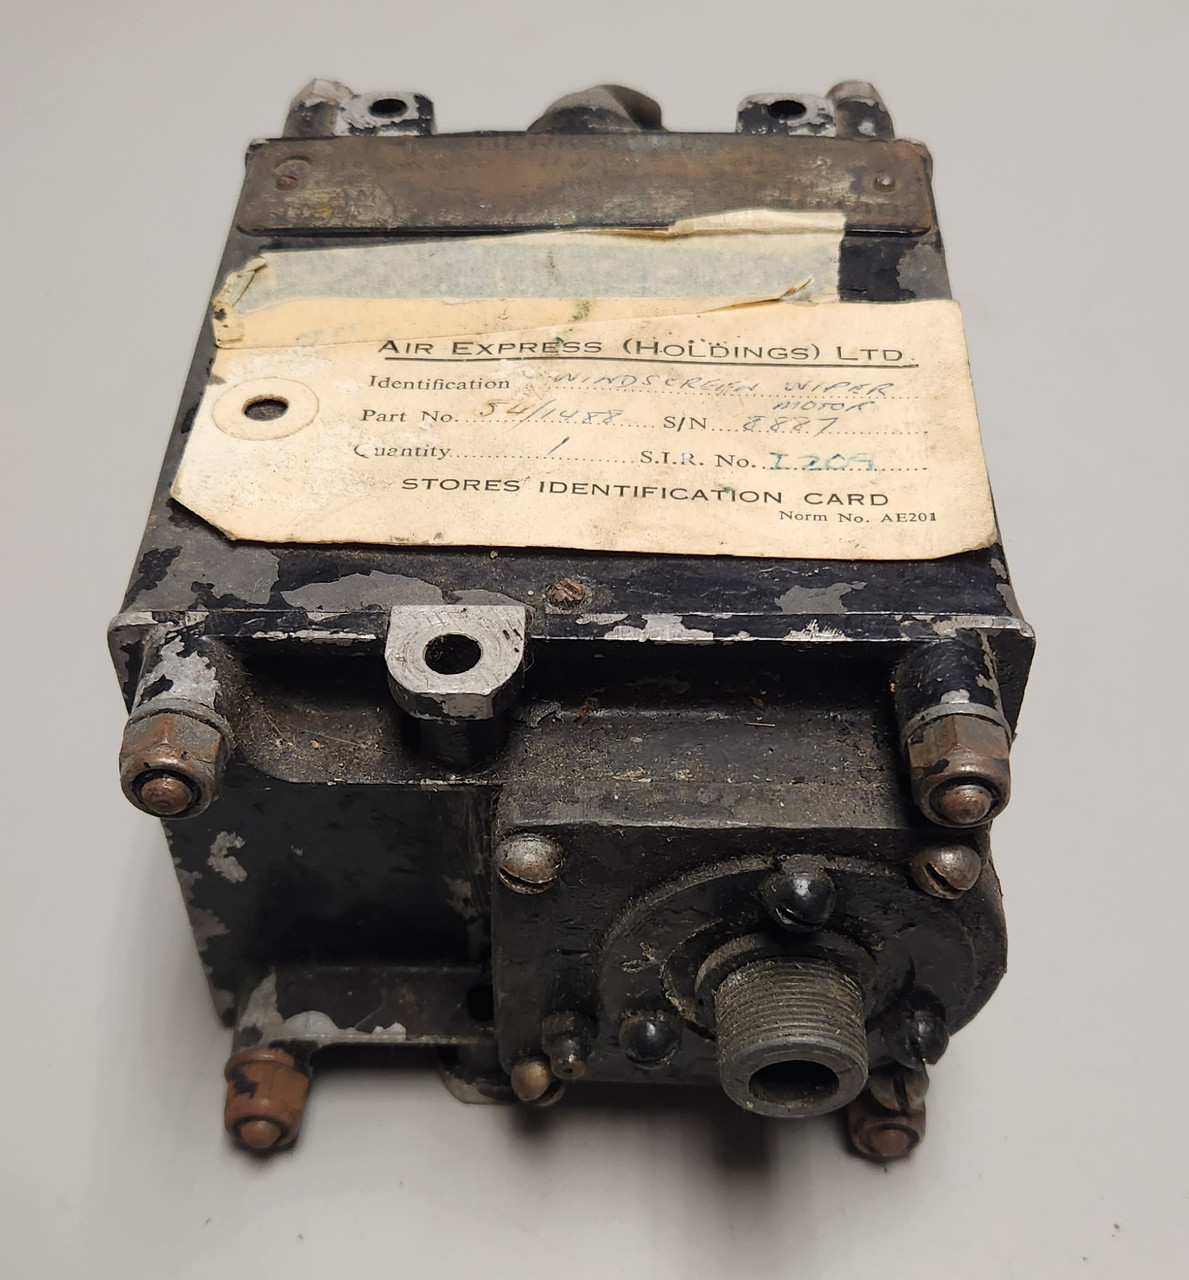 AIR EXPRESS (HOLDINGS) LTD.
Identification WINDSCREEN WIPER
MOTOR
Part No. 54/1488 S/N 8887
Quantity 1 S.I.R. No. I 209
STORES IDENTIFICATION CARD
Norm No. AE201